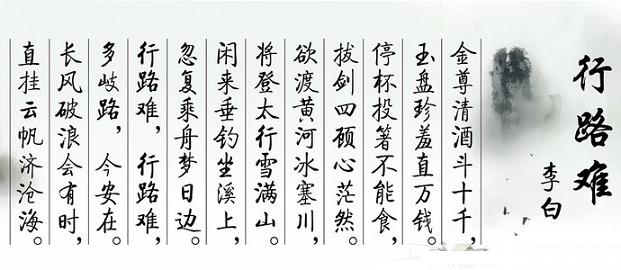 行路难
李白
金尊清酒斗十千，
玉盘珍羞直万钱。
停杯投箸不能食，
拔剑四顾心茫然。
欲渡黄河冰塞川，
将登太行雪满山。
闲来垂钓坐溪上，
忽复乘舟梦日边。
行路难，行路难，
多岐路，今安在。
长风破浪会有时，
直挂云帆济沧海。